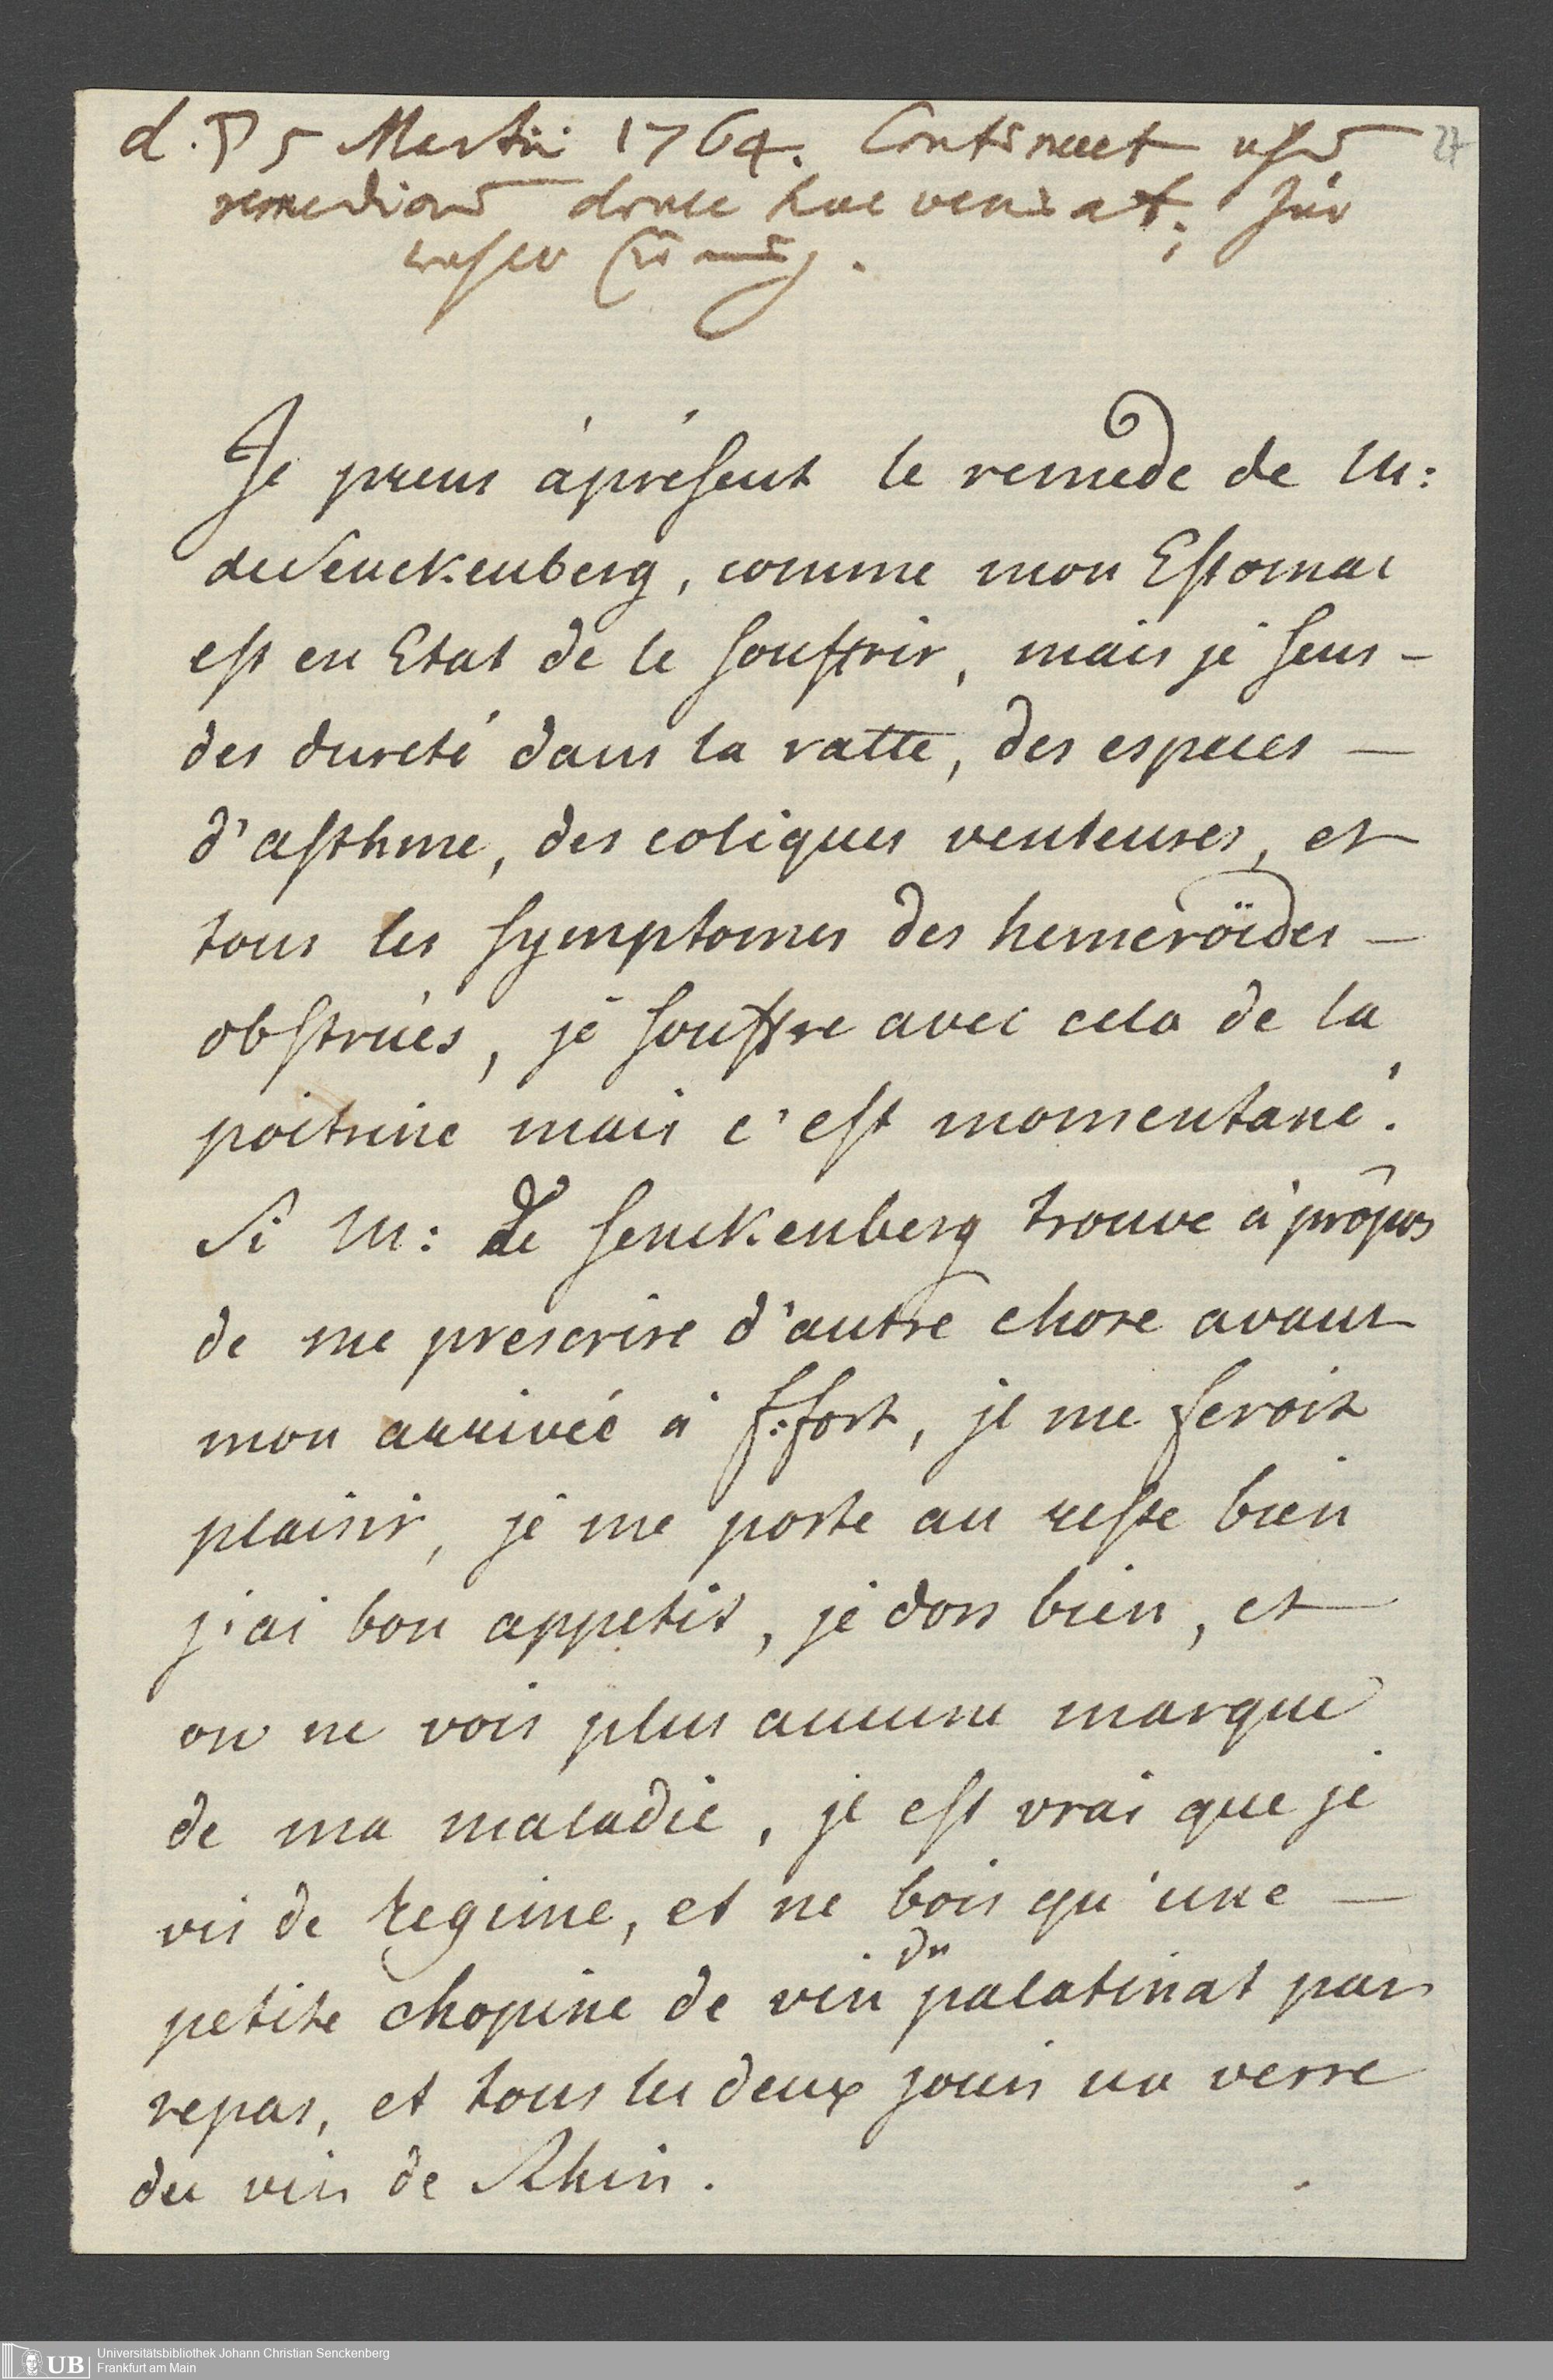 d. 5 Martii 1764. Continuet
27
remedior donec huc veniat,
Je prens àprésent le remede de M:
de Senckenberg, comme mon Estomac
est en Etat de le souffrir, mais je sens -
des dureté dans la ratte, des especes —
d'asthme, des coliques venteuses, et
tous les symptomes des hemeroïdes —
obstrués, je souffre avec cela de la
poitrine mais c'est momentané.
Si M: de Senckenberg trouve à propos
de me prescrire d'autre chose avant
mon arrivée à f:fort, jl me feroit
plaisir, je me porte au reste bien
j'ai bon appetit, je dors bien, et
on ne vois plus aucune marque
de ma maladie, jl est vrai que je
vis de regime, et ne bois qu'une —
petite chopine de vin du palatinat par
repas, et tous les deux jours un verre
du vin de Rhin.
UB
Universitätsbibliothek Johann Christian Senckenberg
Frankfurt am Main